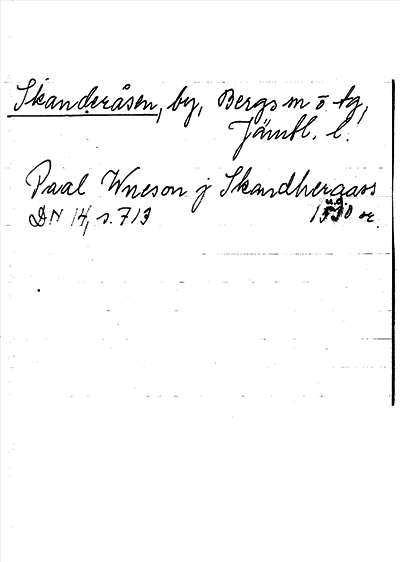 Skanderåsen, by, Bergs m o tg,
Jämtl. l.
Paal Wneson j Skandheraass
DN 14, s. 713 1530 or.
u.d.